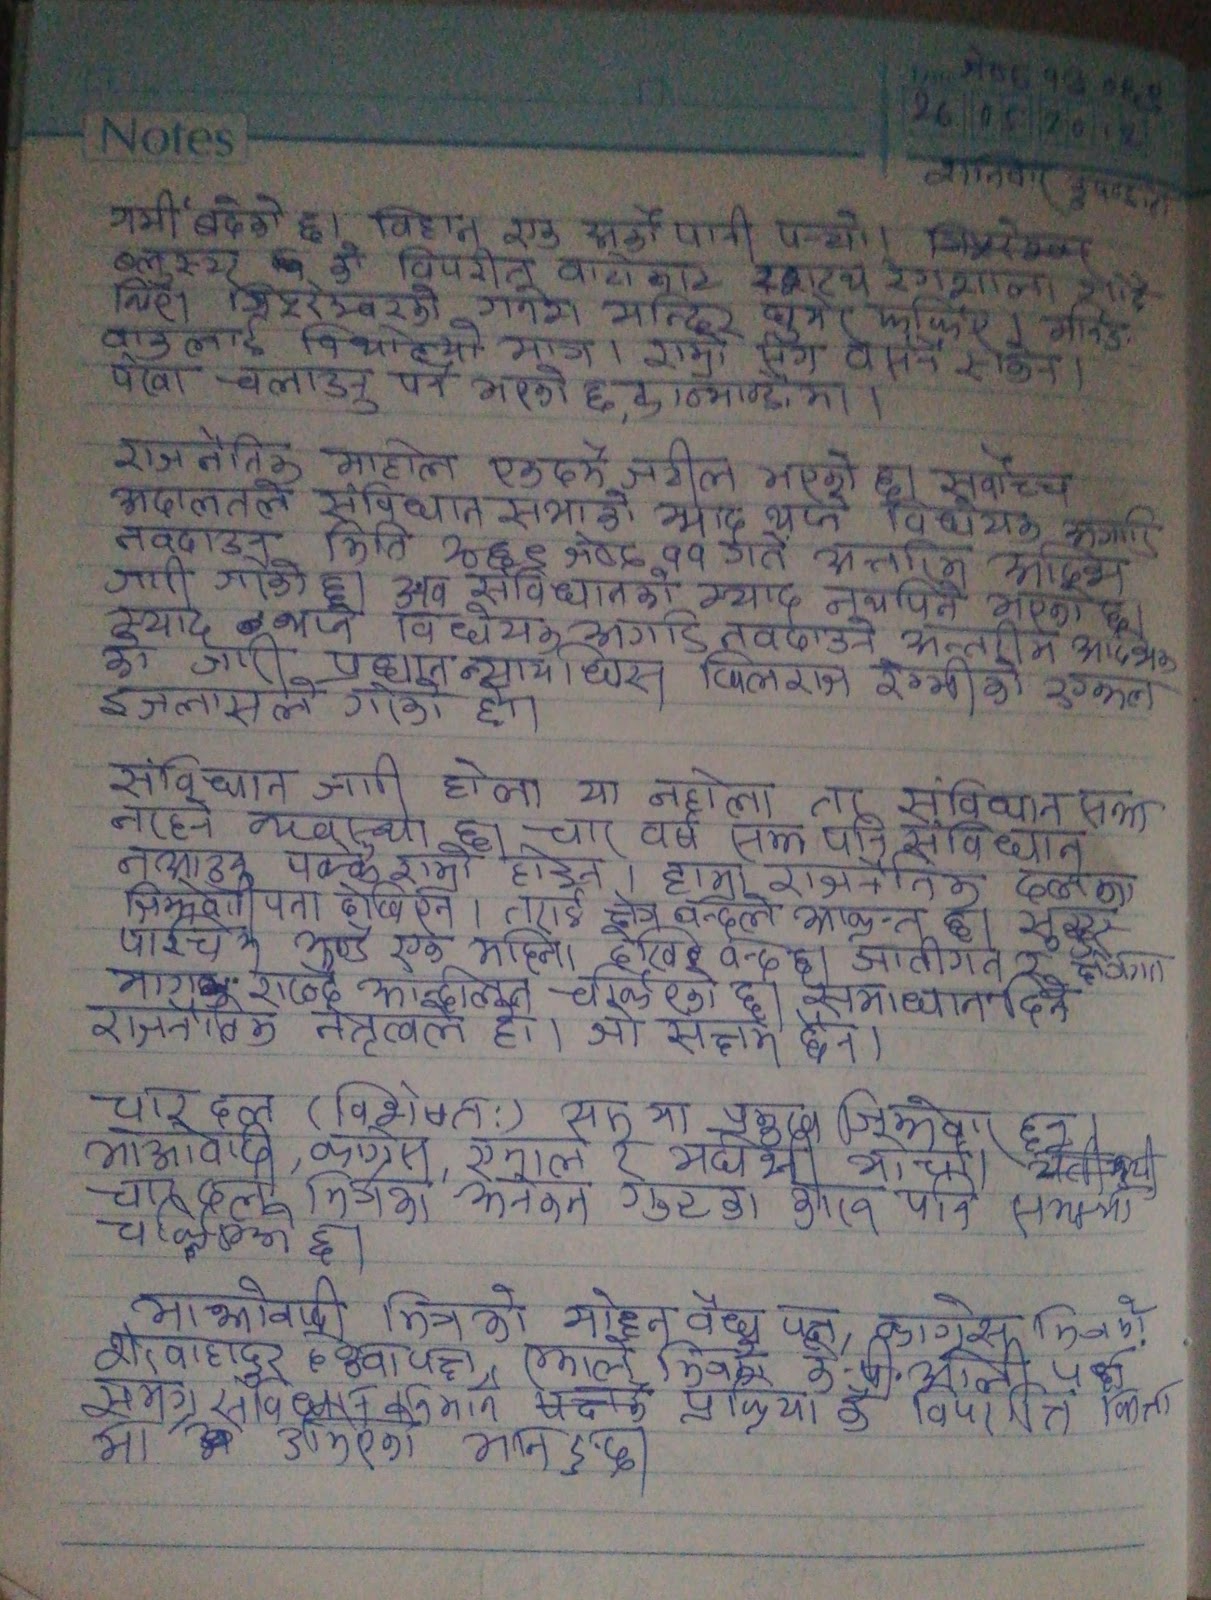 Notes
जेष्ठ १३
26 05 2012
शनिवार
गर्मी बढेको छ। विहान एक अर्को पानी पर्यो।
को विपरीत वाटोबाट रंगशाला
गनेश मन्दिर घुमेर फर्किए।
वाउलाई भात। राम्रो सँग वस्न सकेन।
पंखा चलाउनु पर्ने भएको छ, काठमाण्डौमा।
राजनैतिक माहोल एकदमै जटील भएको छ। सर्वोच्च
अदालतले संविधान सभाको म्याद थप्ने विधेयक अगाडि
नवढाउन मिति जेष्ठ ११ गते अन्तरिम आदेश
जारी गरेको छ। अव संविधानको म्याद नथपिने भएको छ।
म्याद थप्ने विधेयक अगाडि नवढाउने अन्तरीम आदेश
को जारी प्रधान न्यायाधिस खिलराज रेग्मीको एकल
इजलासले गरेको हो।
संविधान जारी होला या नहोला तर संविधान सभा
नरहने व्यवस्था छ। चार वर्ष सम्म पनि संविधान
नआउनु पक्कै राम्रो होईन। हाम्रा राजनैतिक दलका
जिम्मेवारीपना देखिएन। तराई क्षेत्र वन्दले आक्रान्त छ। सुदुर
पश्चिम झण्डै एक महिना देखि वन्द छ। जातीगत र क्षेत्रगत
माग राख्दै आन्दोलन चर्किएको छ। समाधान दिने
राजनैतिक नेतृत्वले हो। जो सक्षम छैन।
चार दल (विशेषत:) सभामा प्रमुख जिम्मेवार छन्।
माओवादी, कांग्रेस, एमाले र मधेसी मोर्चा।
चार दल भित्रका अनेकन गुटका कारण पनि समस्या
चर्किएको छ।
माओवादी भित्रको मोहन वैद्य पक्ष, कांग्रेस भित्रको
शेरवाहादुर देउवा पक्ष, एमाले भित्रको के.पी. ओली पक्ष
समग्र संविधान निर्माण प्रक्रिया कै विपरित कित्ता
मा उभिएको भनिन्छ।